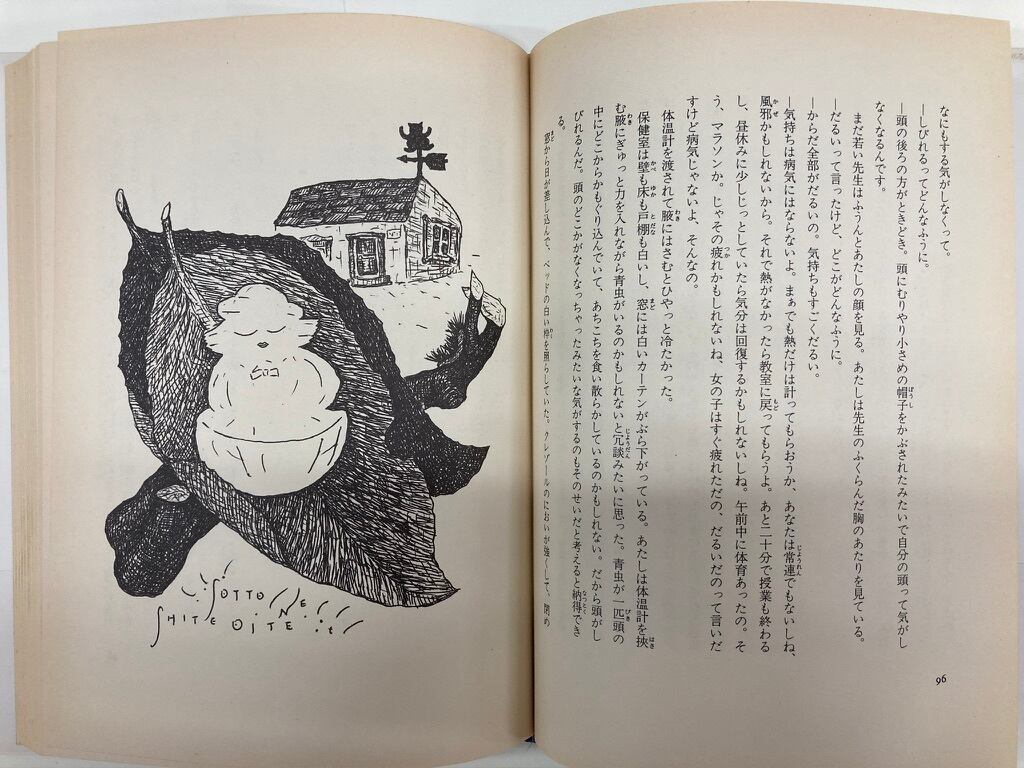 なにもする気がしなくって。
―しびれるってどんなふうに。
―頭の後ろの方がときどき。頭にむりやり小さめの帽子をかぶされたみたいで自分の頭って気がし
なくなるんです。
まだ若い先生はふうんとあたしの顔を見る。あたしは先生のふくらんだ胸のあたりを見ている。
―だるいって言ったけど、どこがどんなふうに。
―からだ全部がだるいの。気持ちもすごくだるい。
―気持ちは病気にはならないよ。まぁでも熱だけは計ってもらおうか、あなたは常連でもないしね、
風邪かもしれないから。それで熱がなかったら教室に戻ってもらうよ。あと二十分で授業も終わる
し、昼休みに少しじっとしていたら気分は回復するかもしれないしね。午前中に体育あったの。そ
う、マラソンか。じゃその疲れかもしれないね、女の子はすぐ疲れただの、だるいだのって言いだ
すけど病気じゃないよ、そんなの。
体温計を渡されて腋にはさむとひやっと冷たかった。
保健室は壁も床も戸棚も白いし、窓には白いカーテンがぶら下がっている。あたしは体温計を挾
む腋にぎゅっと力を入れながら青虫がいるのかもしれないと冗談みたいに思った。青虫が一匹頭の
中にどこからかもぐり込んでいて、あちこちを食い散らかしているのかもしれない。だから頭がし
びれるんだ。頭のどこかがなくなっちゃったみたいな気がするのもそのせいだと考えると納得でき
る。
窓から日が差し込んで、ベッドの白い枠を照らしていた。クレゾールのにおいが強くして、閉め
96
SOTTO
SHITE OITE NE